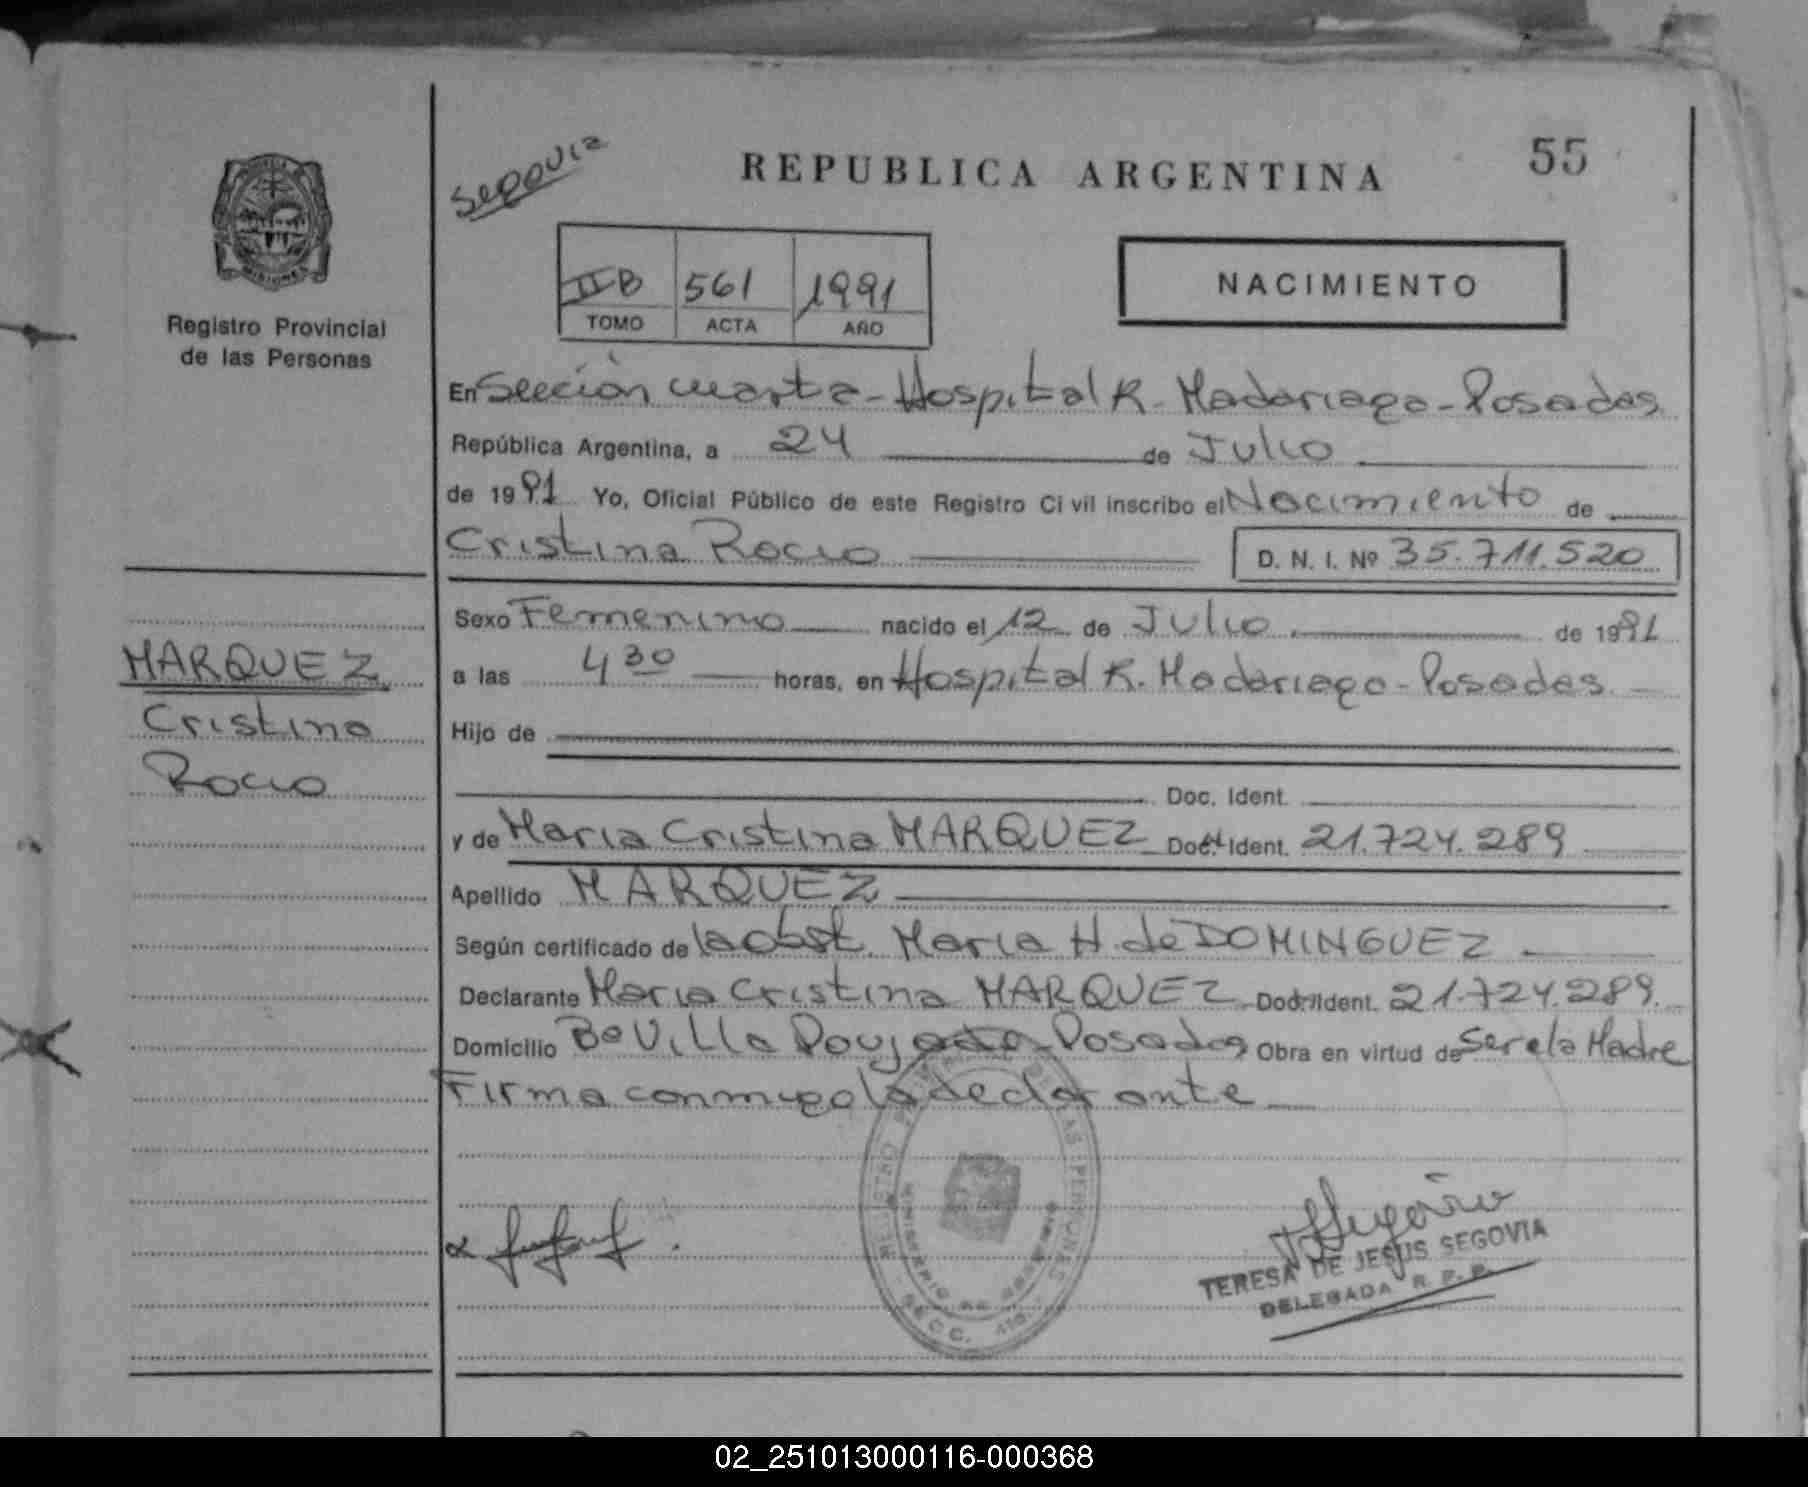 Segovia
REPUBLICA ARGENTINA
55
IIB 561 1991
TOMO ACTA AÑO
NACIMIENTO
MISIONES
Registro Provincial
de las Personas
En Sección cuarta - Hospital R. Madariaga - Posadas
República Argentina, a 24 de Julio
de 1991 Yo, Oficial Público de este Registro Civil inscribo el Nacimiento de
Cristina Rocio D. N. I. Nº 35.711.520
Sexo Femenino nacido el 12 de Julio de 1991
a las 4 30 horas, en Hospital R. Madariaga - Posadas
Hijo de
Doc. Ident.
y de Maria Cristina MARQUEZ Doc. Ident. 21.724.289
Apellido MARQUEZ
Según certificado de la obst. Maria H. de DOMINGUEZ
Declarante Maria Cristina MARQUEZ Doc. Ident. 21.724.289
Domicilio Bº Villa Poujade - Posadas Obra en virtud de Ser la Madre
Firma conmigo la declarante
MARQUEZ
Cristina
Rocio
REGISTRO PROVINCIAL DE LAS PERSONAS
MINISTERIO DE GOBIERNO
SECC. 4ta.
TERESA DE JESUS SEGOVIA
DELEGADA R. P. P.
02_251013000116-000368